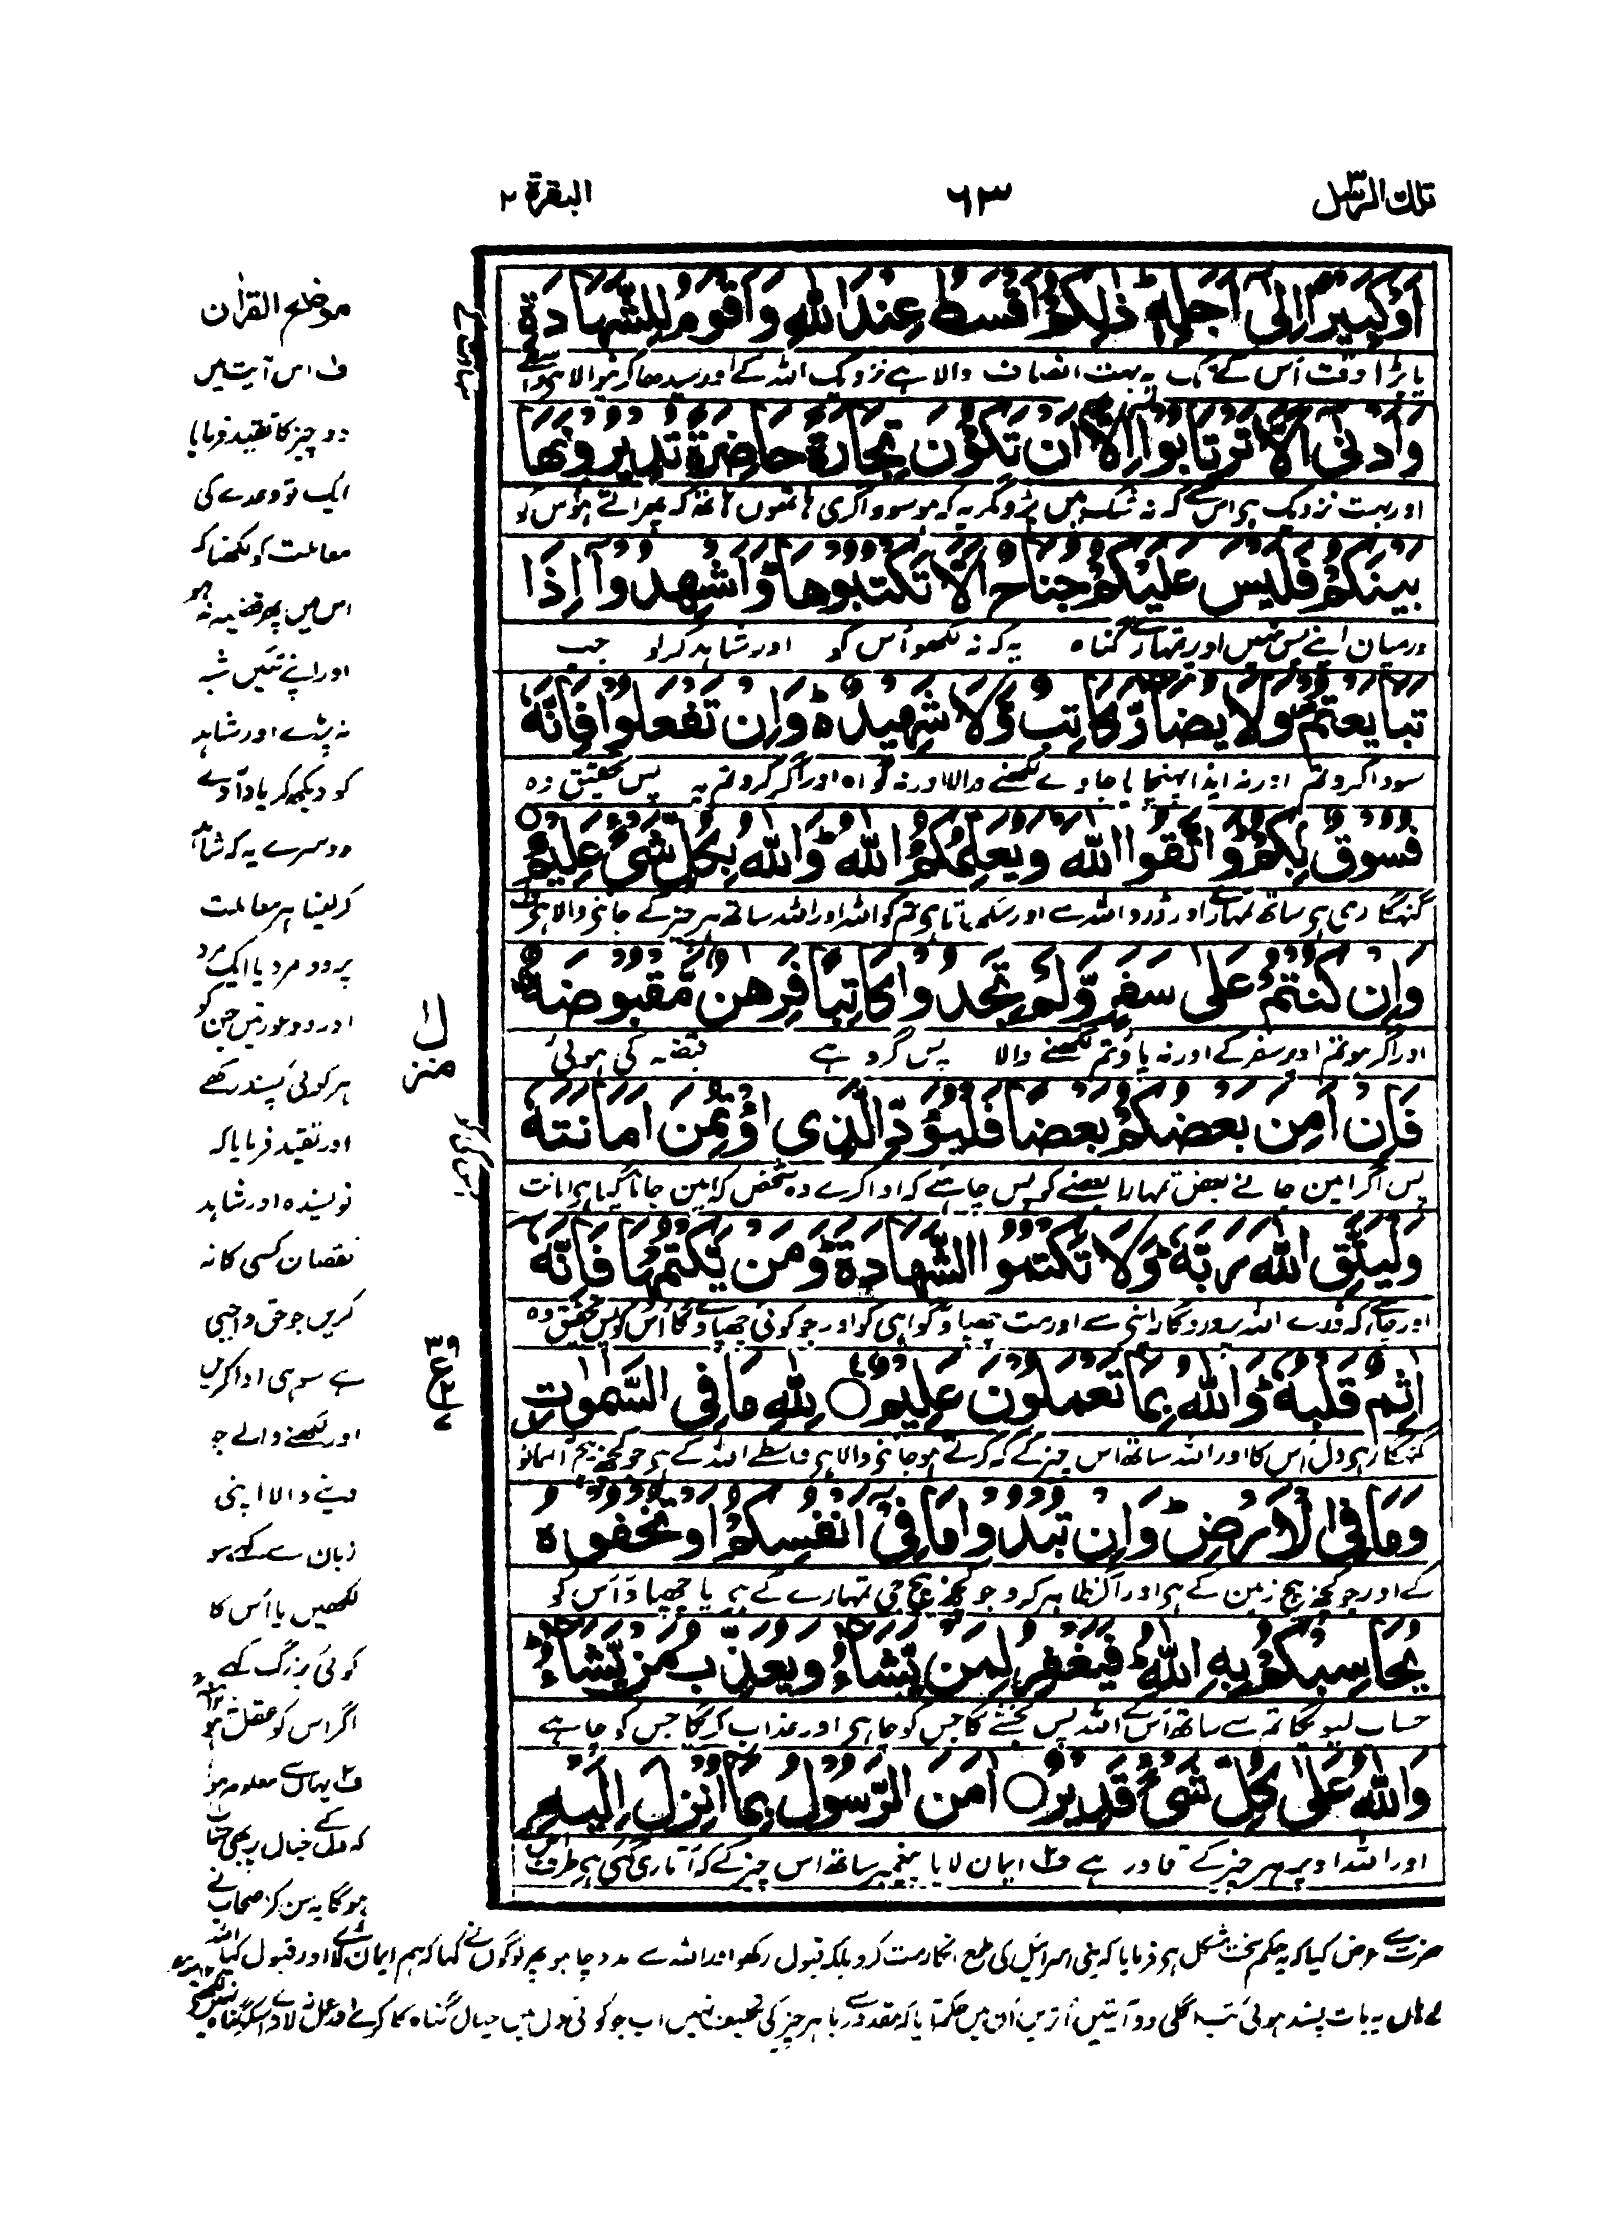 تلك الرسل ٣
٦٣
البقرة ٢
اَوْ كَبِيْرًا اِلٰٓى اَجَلِهٖ ؕ ذٰلِكُمْ اَقْسَطُ عِنْدَ اللّٰهِ وَاَقْوَمُ لِلشَّهَادَةِ
یا بڑا وقت اُس کے تک یہ بہت انصاف والا ہے نزدیک اللہ کے اور سیدھا کرنیوالا ہی واسطے
وَاَدْنٰٓى اَلَّا تَرْتَابُوْٓا اِلَّآ اَنْ تَكُوْنَ تِجَارَةً حَاضِرَةً تُدِيْرُوْنَهَا
اور بہت نزدیک ہی اس سے کہ نہ شک میں پڑو مگر یہ کہ ہو سوداگری ہاتھوں ہاتھ کہ پھراتے ہو اس کو
بَيْنَكُمْ فَلَيْسَ عَلَيْكُمْ جُنَاحٌ اَلَّا تَكْتُبُوْهَا ؕ وَاَشْهِدُوْٓا اِذَا
درمیان اپنے پس نہیں اوپر تمہارے گناہ یہ کہ نہ لکھو اُس کو اور شاہد کر لو جب
تَبَايَعْتُمْ ۪ وَلَا يُضَآرَّ كَاتِبٌ وَّلَا شَهِيْدٌ ؕ وَاِنْ تَفْعَلُوْا فَاِنَّهٗ
سودا کرو تم اور نہ ایذا پہنچایا جاوے لکھنے والا اور نہ گواہ اور اگر کرو تم یہ پس تحقیق وہ
فُسُوْقٌۢ بِكُمْ ؕ وَاتَّقُوا اللّٰهَ ؕ وَيُعَلِّمُكُمُ اللّٰهُ ؕ وَاللّٰهُ بِكُلِّ شَىْءٍ عَلِيْمٌ ○
گنہگاری ہی ساتھ تمہارے اور ڈرو اللہ سے اور سکھلاتا ہی تم کو اللہ اور اللہ ساتھ ہر چیز کے جاننے والا ہی ف
وَاِنْ كُنْتُمْ عَلٰى سَفَرٍ وَّلَمْ تَجِدُوْا كَاتِبًا فَرِهٰنٌ مَّقْبُوْضَةٌ ؕ
اور اگر ہو تم اوپر سفر کے اور نہ پاؤ تم لکھنے والا پس گرو ہے قبضہ کی ہوئی
فَاِنْ اَمِنَ بَعْضُكُمْ بَعْضًا فَلْيُؤَدِّ الَّذِى اؤْتُمِنَ اَمَانَتَهٗ
پس اگر امین جانے بعض تمہارا بعضے کو پس چاہئے کہ ادا کرے وہ شخص کہ امین جانا گیا ہی امانت
وَلْيَتَّقِ اللّٰهَ رَبَّهٗ ؕ وَلَا تَكْتُمُوا الشَّهَادَةَ ؕ وَمَنْ يَّكْتُمْهَا فَاِنَّهٗٓ
اور چاہئے کہ ڈرے اللہ پروردگار اپنے سے اور مت چھپاؤ گواہی کو اور جو کوئی چھپاوے گا اُس کو پس تحقیق وہ
اٰثِمٌ قَلْبُهٗ ؕ وَاللّٰهُ بِمَا تَعْمَلُوْنَ عَلِيْمٌ ○ لِلّٰهِ مَا فِى السَّمٰوٰتِ
گنہگار ہی دل اُس کا اور اللہ ساتھ اس چیز کے کہ کرتے ہو جاننے والا ہی واسطے اللہ کے ہی جو کچھ بیچ آسمانو
وَمَا فِى الْاَرْضِ ؕ وَاِنْ تُبْدُوْا مَا فِىْٓ اَنْفُسِكُمْ اَوْ تُخْفُوْهُ
کے اور جو کچھ بیچ زمین کے ہی اور اگر ظاہر کرو جو کچھ بیچ جی تمہارے کے ہی یا چھپاؤ اُس کو
يُحَاسِبْكُمْ بِهِ اللّٰهُ ؕ فَيَغْفِرُ لِمَنْ يَّشَآءُ وَيُعَذِّبُ مَنْ يَّشَآءُ ؕ
حساب لیویگا تم سے ساتھ اُس کے اللہ پس بخشے گا جس کو چاہی اور عذاب کریگا جس کو چاہے
وَاللّٰهُ عَلٰى كُلِّ شَىْءٍ قَدِيْرٌ ○ اٰمَنَ الرَّسُوْلُ بِمَآ اُنْزِلَ اِلَيْهِ
اور اللہ اوپر ہر چیز کے قادر ہے ف٢ ایمان لایا پیغمبر ساتھ اس چیز کے کہ اُتاری گئی ہی طرف اس
موضح القرآن
ف ا اس آیت میں
دو چیز کا تقید فرمایا
ایک تو وعدے کی
معاملت کو لکھنا کہ
اس میں پھر قضیہ نہ ہو
اور اپنے تئیں شبہ
نہ پڑے اور شاہد
کو دیکھ کر یاد آوے
دوسرے یہ کہ شاہد
کر لینا ہر معاملت
پر دو مرد یا ایک مرد
اور دو عورتیں جن کو
ہر کوئی پسند رکھے
اور تقید فرمایا کہ
نویسندہ اور شاہد
نقصان کسی کا نہ
کریں جو حق واجبی
ہے سو ہی ادا کریں
اور لکھنے والے جو
دینے والا اپنی
زبان سے کہے سو
لکھیں یا اُس کا
کوئی بزرگ کہے
اگر اس کو عقل نہ ہو
ف٢ یہاں سے معلوم ہوا
کہ دل کے خیال پر بھی حساب
ہو گا یہ سن کر صحابہ نے
منزل ١
٣٩
ع
٧
حضرت سے عرض کیا کہ یہ حکم سخت مشکل ہی فرمایا کہ بنی اسرائیل کی طرح انکار مت کرو بلکہ قبول رکھو اور اللہ سے مدد چاہو پھر لوگوں نے کہا کہ ہم ایمان لائے اور قبول کیا اللہ
کے ہاں یہ بات پسند ہوئی تب اگلی دو آیتیں اُتریں اُن میں حکم آیا کہ مقدور سے باہر چیز کی تکلیف نہیں اب جو کوئی دل میں خیال گناہ کا کرے اور عمل نہ لاوے اسکو گناہ نہیں لکھتے